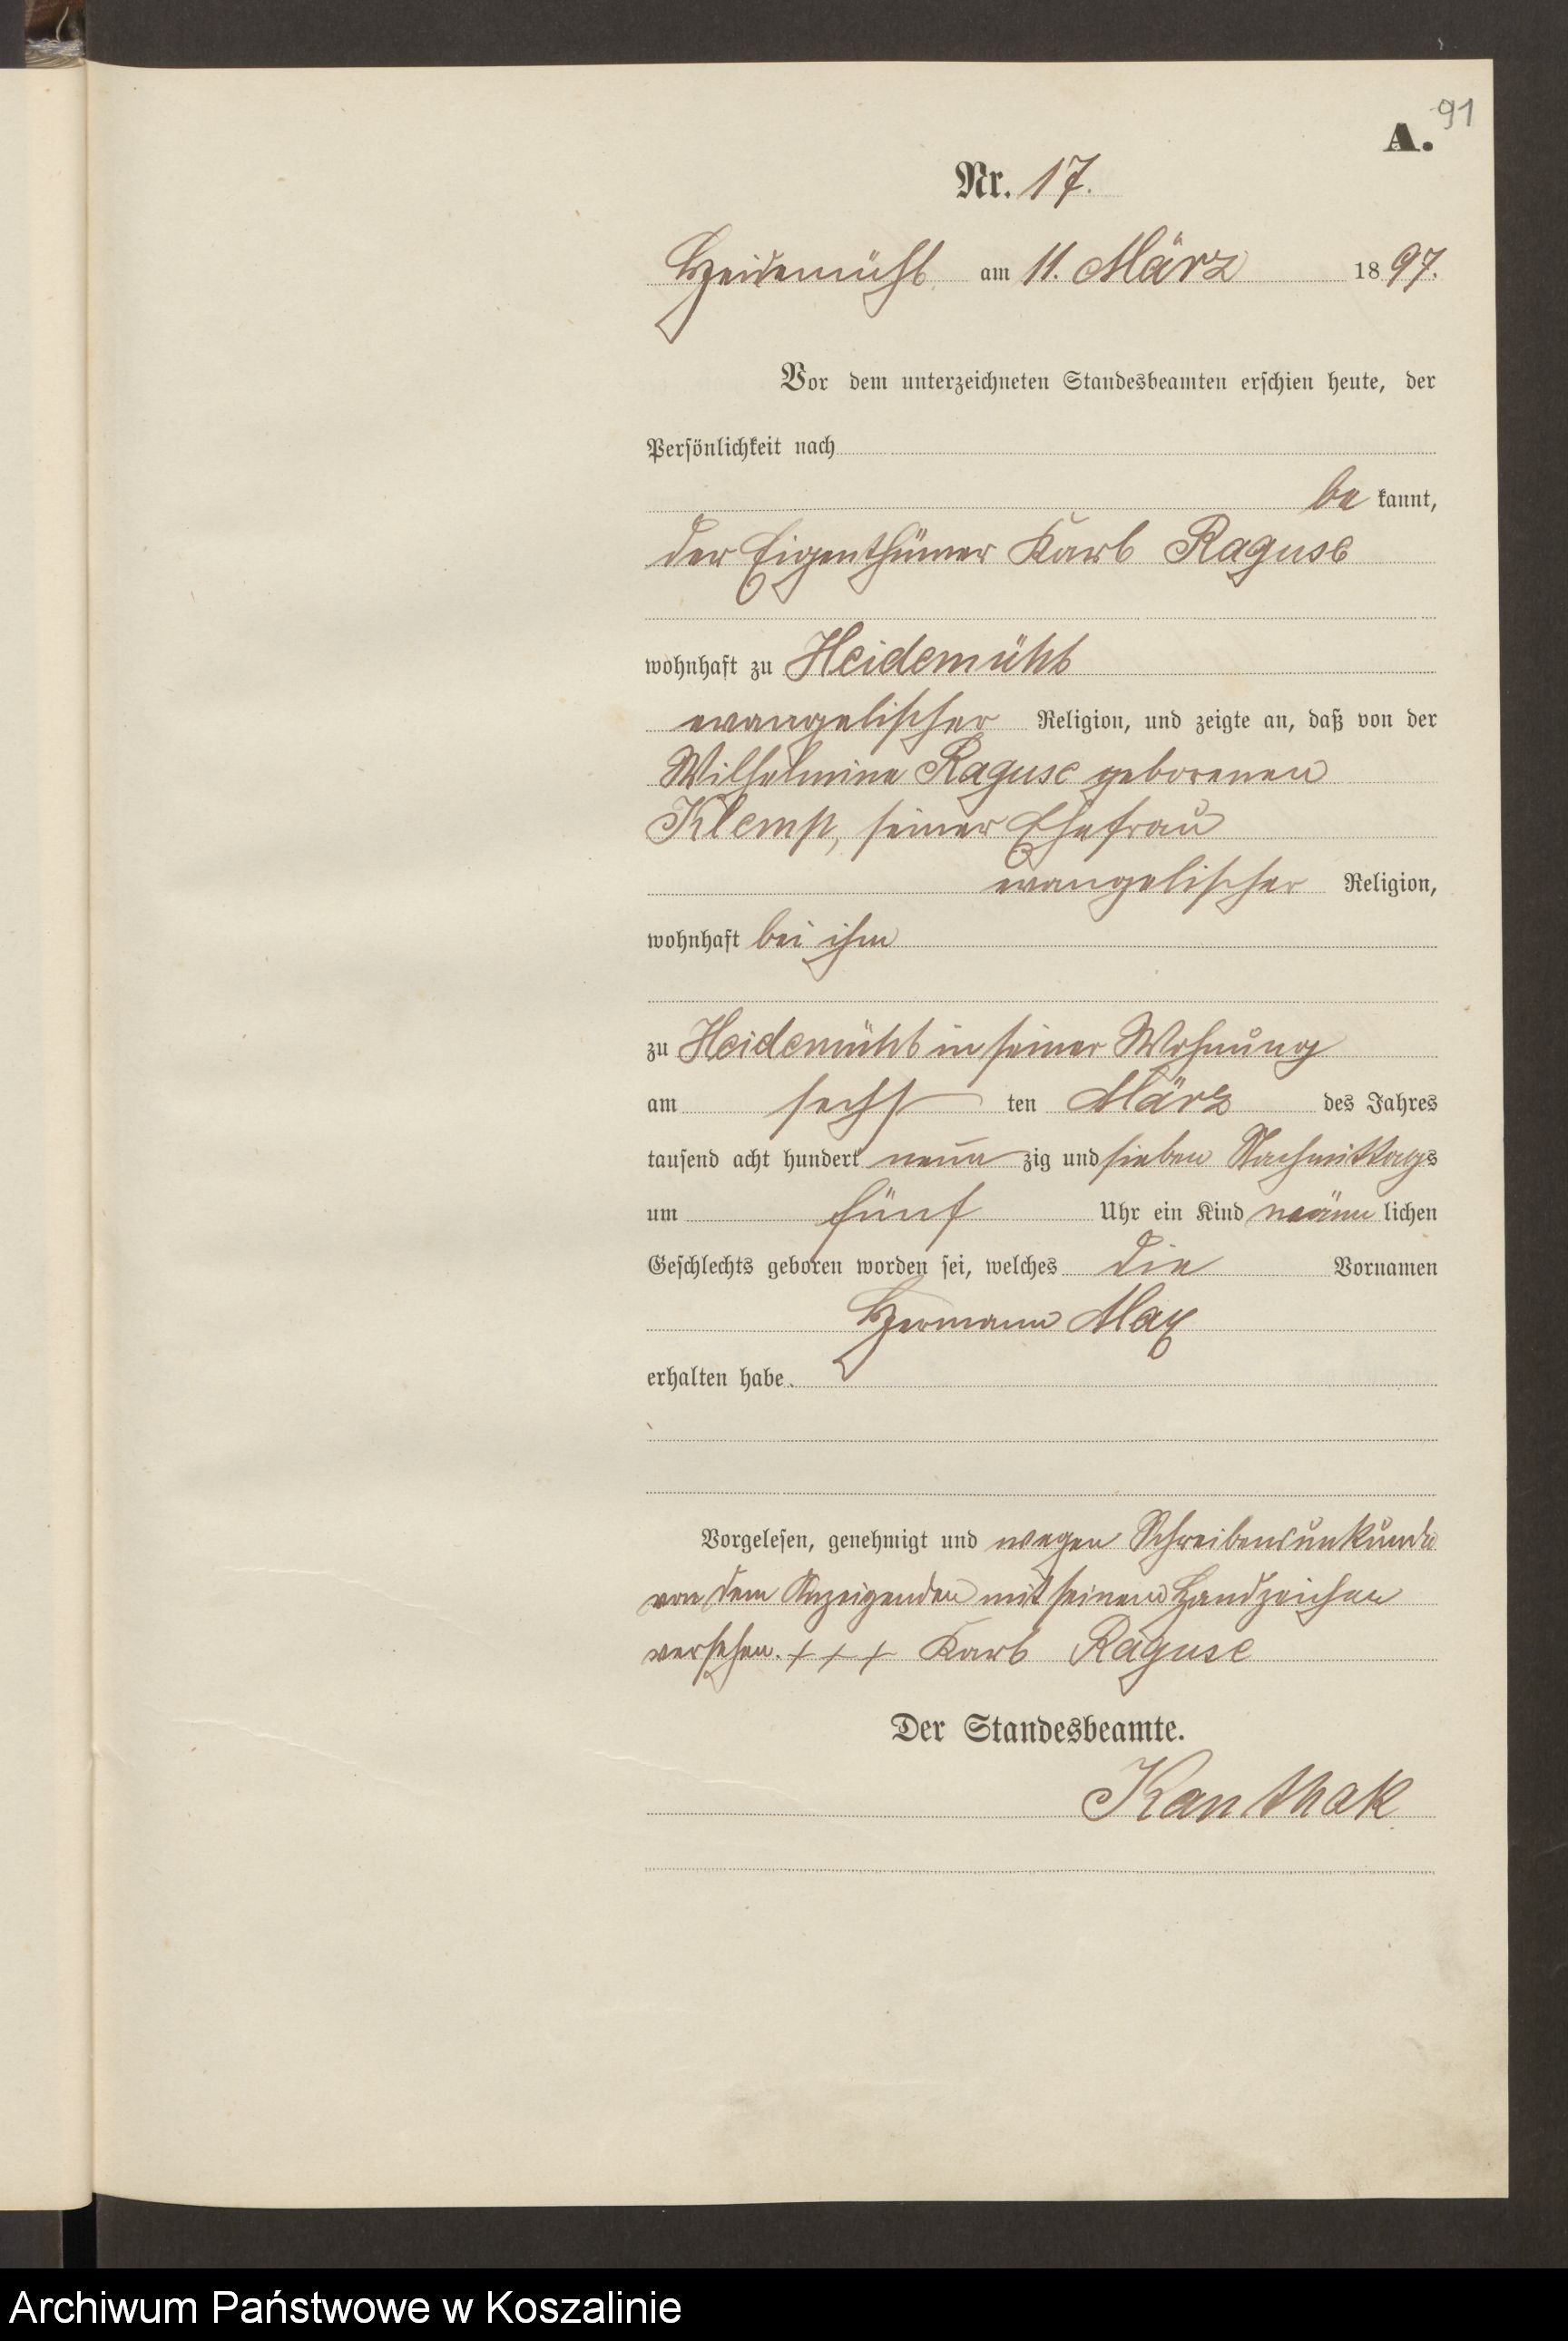 91
A.
Nr. 17.
Heidemühl am 11. März 1897.
Vor dem unterzeichneten Standesbeamten erschien heute, der
Persönlichkeit nach
be kannt,
der Eigenthümer Karl Raguse
wohnhaft zu Heidemühl
evangelischer Religion, und zeigte an, daß von der
Wilhelmine Raguse geborenen
Klemp, seiner Ehefrau
evangelischer Religion,
wohnhaft bei ihm
zu Heidemühl in seiner Wohnung
am sechs ten März des Jahres
tausend acht hundert neun zig und sieben Nachmittags
um fünf Uhr ein Kind männ lichen
Geschlechts geboren worden sei, welches die Vornamen
Hermann Max
erhalten habe.
Vorgelesen, genehmigt und wegen Schreibensunkunde
von dem Anzeigenden mit seinem Handzeichen
versehen. +++ Karl Raguse
Der Standesbeamte.
Kanthak
Archiwum Państwowe w Koszalinie